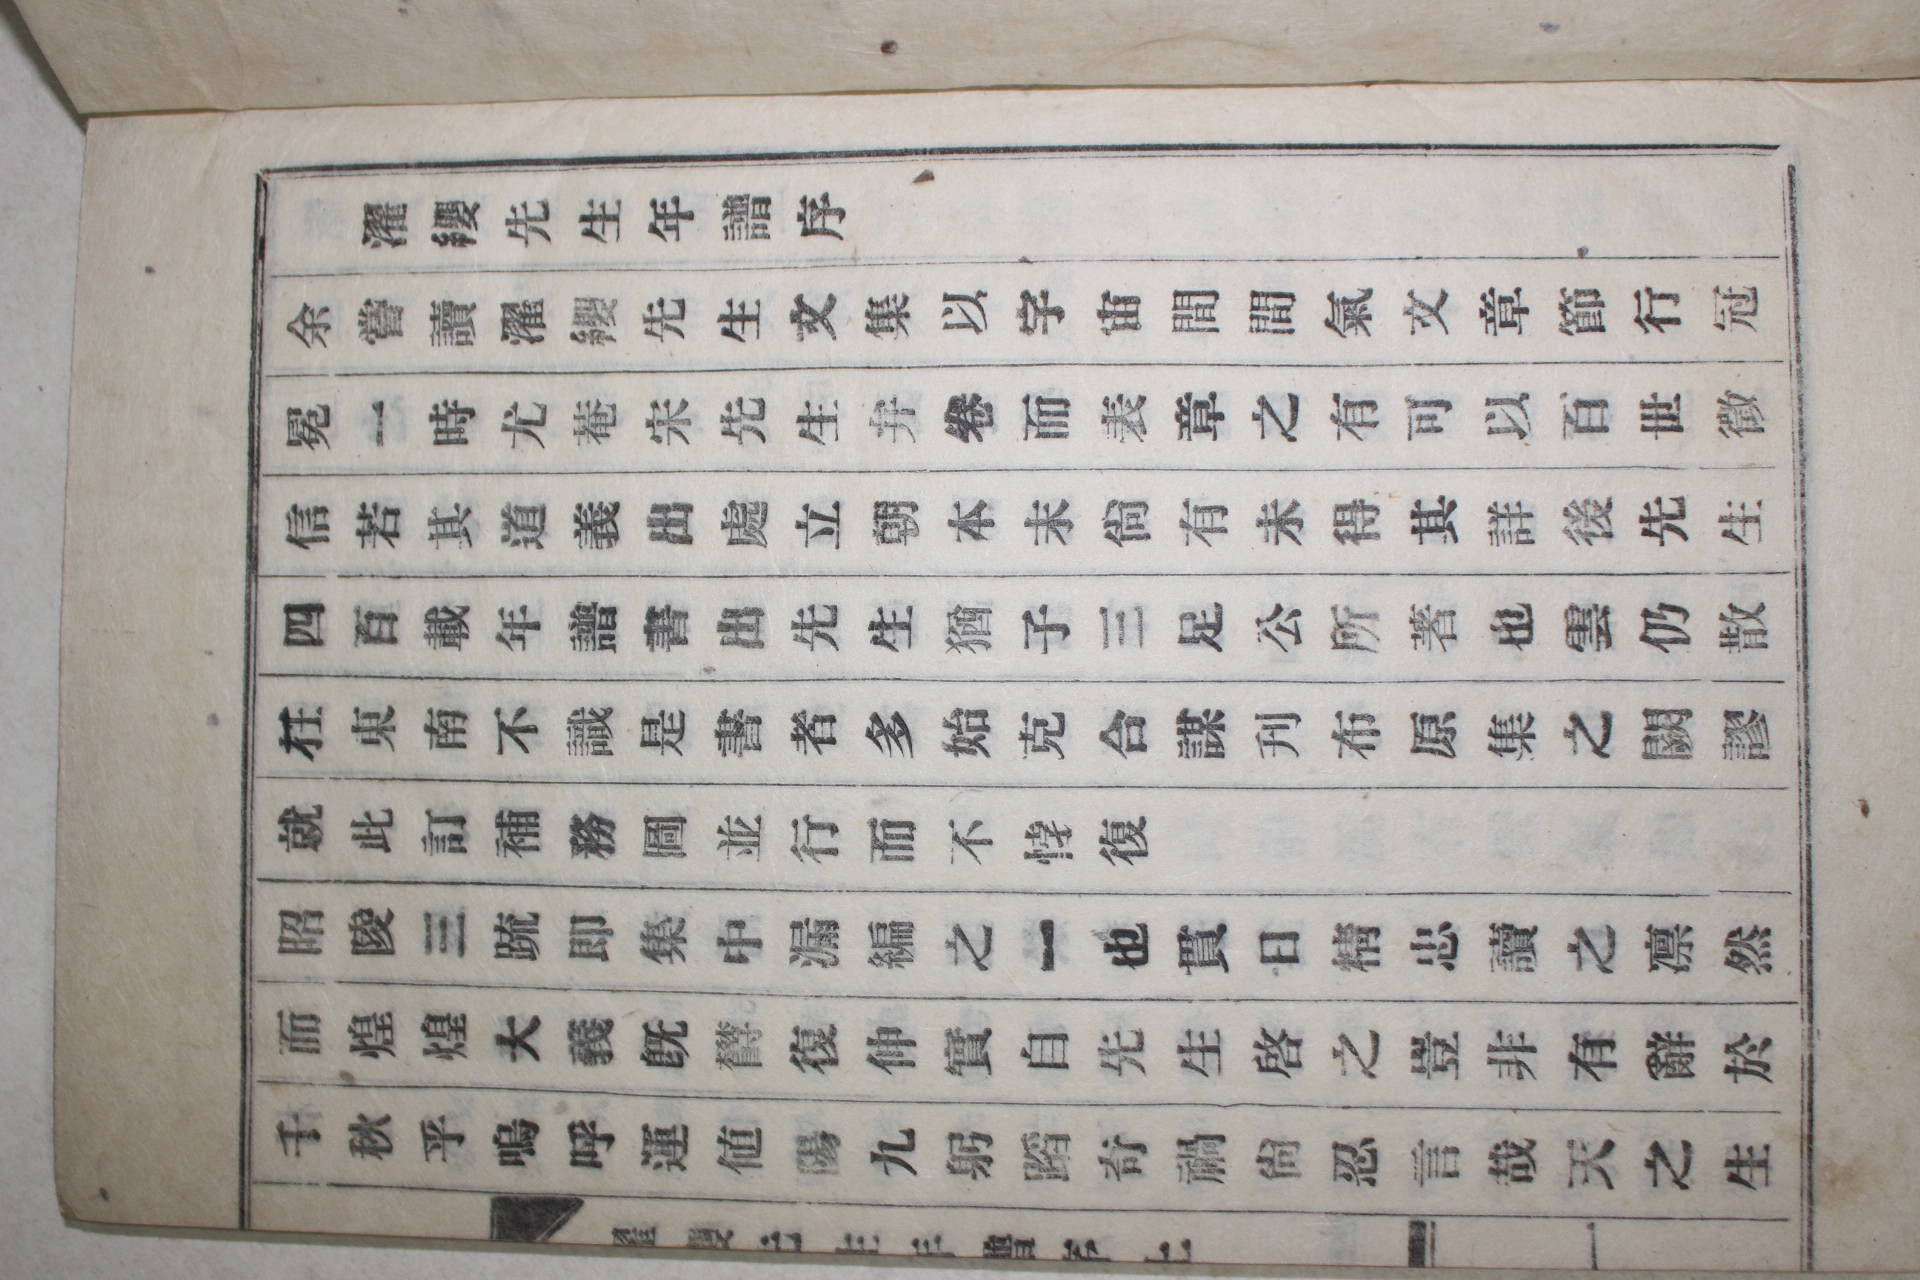 濯纓先生年譜序
余嘗讀濯纓先生文集以字宙間間氣文章節行冠
冕一時尤菴宋先生弁卷而表章之有可以百世徵
信若其道義出處立朝本末尙有未得其詳後先生
四百載年譜書出先生猶子三足公所著也雲仍散
在東南不識是書者多始克合謀刊布原集之闕謬
就此訂補務圖並行而不悖復
昭陵三疏即集中漏編之一也貫日精忠讀之凛然
而煌煌大義旣欝復伸實自先生啓之豈非有辭於
千秋乎嗚呼運値陽九躬蹈奇禍尙忍言哉天之生
濯纓先生年譜序上
一